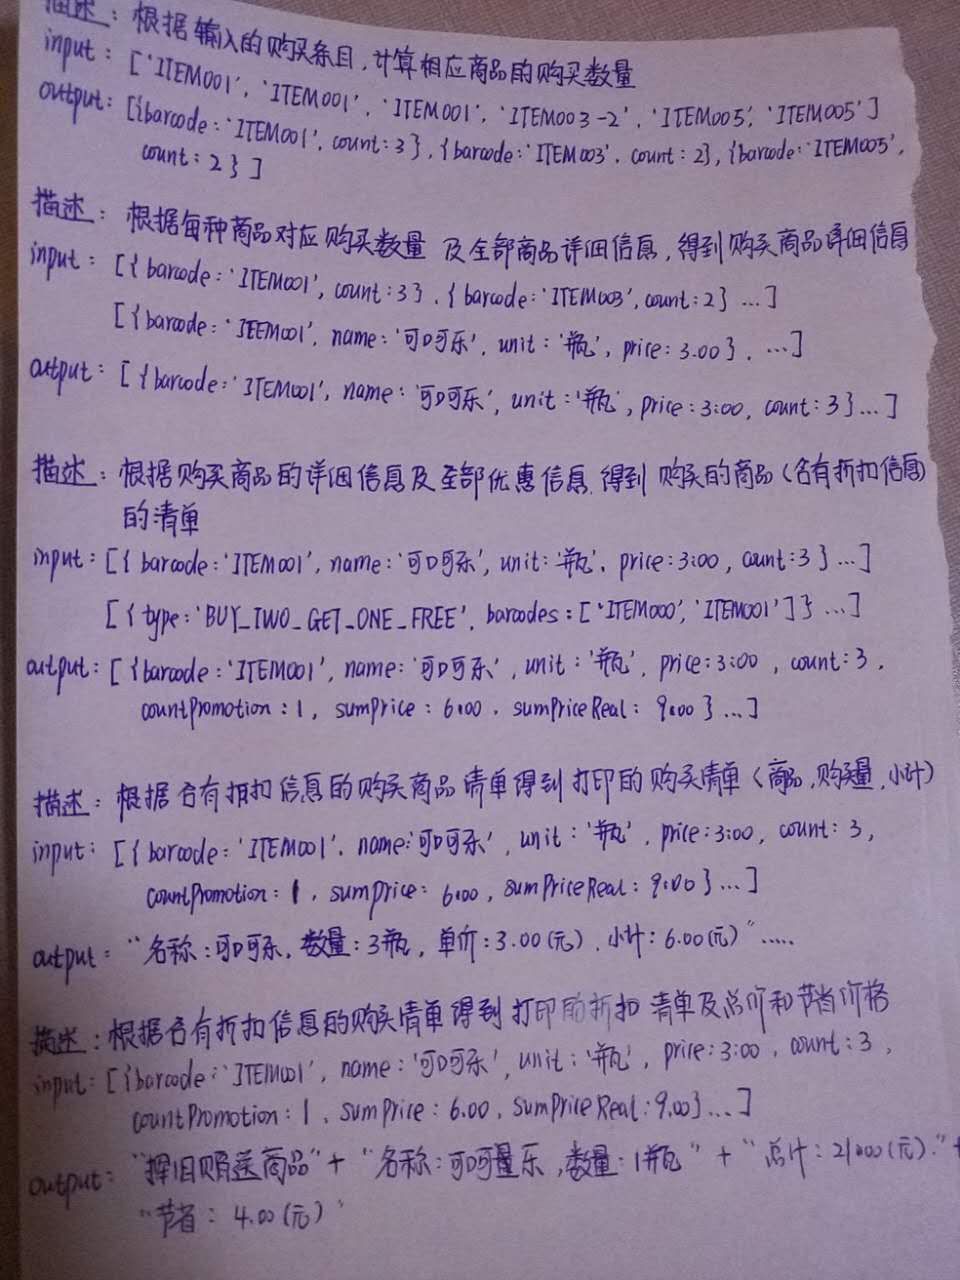 描述：根据输入的购买条目，计算相应商品的购买数量
input: ['ITEM001', 'ITEM001', 'ITEM001', 'ITEM003-2', 'ITEM005', 'ITEM005']
output: [{barcode:'ITEM001', count:3}, {barcode:'ITEM003', count:2}, {barcode:'ITEM005',
count:2}]
描述：根据每种商品对应购买数量 及全部商品详细信息，得到购买商品详细信息
input: [{barcode:'ITEM001', count:3}, {barcode:'ITEM003', count:2} ...]
[{barcode:'ITEM001', name:'可口可乐', unit:'瓶', price:3.00}, ...]
output: [{barcode:'ITEM001', name:'可口可乐', unit:'瓶', price:3:00, count:3}...]
描述：根据购买商品的详细信息及全部优惠信息，得到 购买的商品(含有折扣信息)
的清单
input: [{barcode:'ITEM001', name:'可口可乐', unit:'瓶', price:3:00, count:3} ...]
[{type:'BUY_TWO_GET_ONE_FREE', barcodes:['ITEM000', 'ITEM001']} ...]
output: [{barcode:'ITEM001', name:'可口可乐', unit:'瓶', price:3:00, count:3,
countPromotion:1, sumPrice:6.00, sumPriceReal:9.00} ...]
描述：根据含有折扣信息的购买商品清单得到打印的购买清单(商品,购买量,小计)
input: [{barcode:'ITEM001', name:'可口可乐', unit:'瓶', price:3:00, count:3,
countPromotion:1, sumPrice:6.00, sumPriceReal:9.00} ...]
output: "名称:可口可乐, 数量:3瓶, 单价:3.00(元), 小计:6.00(元)" .....
描述：根据含有折扣信息的购买清单得到打印的折扣清单及总价和节省价格
input: [{barcode:'ITEM001', name:'可口可乐', unit:'瓶', price:3:00, count:3,
countPromotion:1, sumPrice:6.00, sumPriceReal:9.00} ...]
output: "挥泪赠送商品" + "名称:可口可乐, 数量:1瓶" + "总计:21.00(元)." +
"节省:4.00(元)"